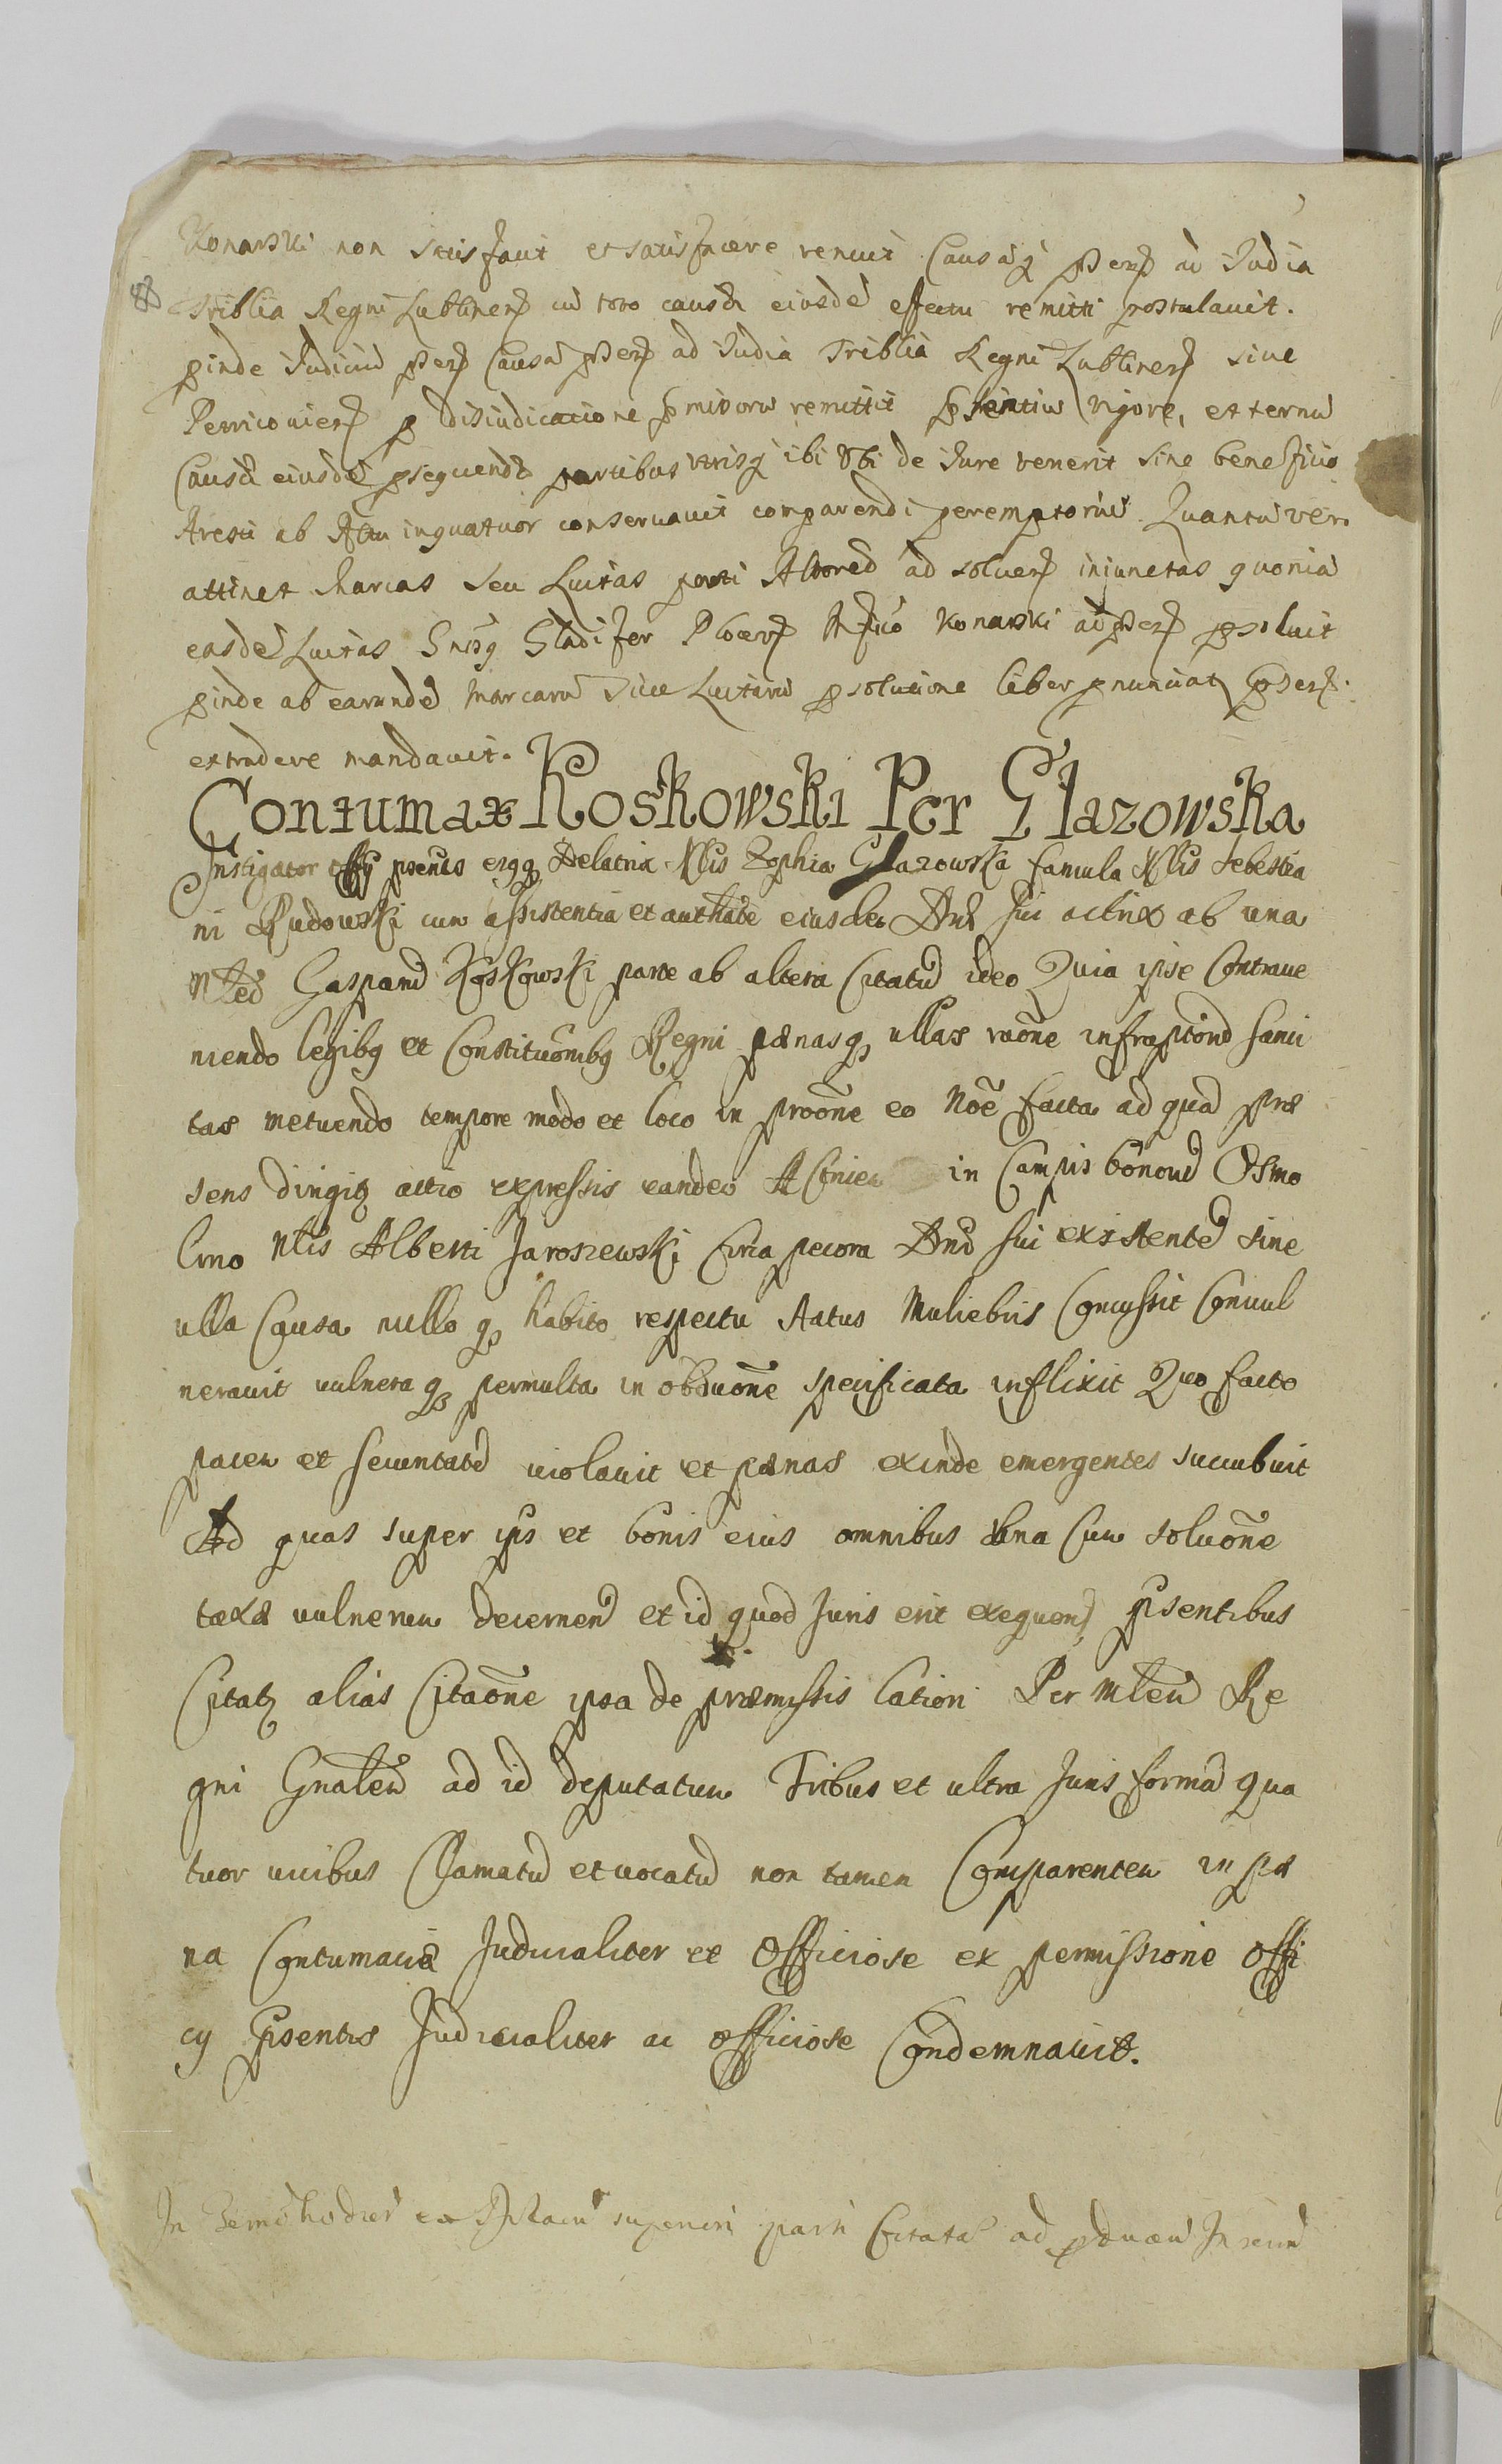 Konarski non satisfacit et satisfacere renuit Causãq; pñsen ad Judicia
Triblia Regni Lublinen cũ toto causæ eiusdẽ effectu remitti postulavit.
pinde Judiciũ pñsen Causã pñsen ad Judicia Triblia Regni Lublinen sive
Petricovien p disiudicatione pmissorũ remittit pñsentiũ vigore, et ternũ
Causæ eiusdẽ psequendæ partibus utrisq; ibi ubi de iure venerit sine beneficio
Aresti ab Actu in quatuor conservavit comparendi peremptoriũ. Quantũ vero
attinet Marcas seu Luitas parti Actoreæ ad solven injunctas quoniã
easdẽ Luitas Gladifer Konarski ad pñsen psoluit
pinde ab earundẽ marcarũ sive Luitarũ psolutione liber pnunciat
extradere mandavit.
Contumax Koskowski Per Glazowska
Instigator Offii pñtis eiqq Delatrix Nlis Zophia Glazowska famula Nlis Sebestia
ni Rudowski cum assistentia et authãte eiusdem Dni sui actrix ab una
Nlem Gasparũ Koskowski parte ab altera Citatũ ideo Quia ipse Contrave
niendo legibq et Constitũonibq Regni pænasq; ullas rãone infraptorũ sanci
tas metuendo tempore modo et loco in prõone eo Nõe facta ad quã præ
sens dirigitq actio expressis eandem in Campis bonorũ Osmo
lino Nlis Alberti Jaroszewski circa pecora Dni sui existentẽ sine
ulla Causa nulloq; habito respectu status Muliebris Concussit Convul
neravit vulneraq; permulta in obduõne specificata inflixit Quo facto
pacem et securitatẽ violavit et pænas exinde emergentes succubuit
Ad quas super ips et bonis eius omnibus una Cum solũone
taxæ vulnerum decernen et id quod Juris erit exequen psentibus
Citatq alias Citãone ipsa de præmissis latiori Per Mlem Re
gni Gnalem ad id deputatum Tribus et ultra Juris formã qua
tuor vicibus Clamatũ et vocatũ non tamen Comparentem in pæ
na Contumaciæ Judicialiter et Officiose ex permissione Offi
cy psentis Judicialiter ac officiose Condemnavit.
In Termĩo hodier ex superiori parti Citatæ ad